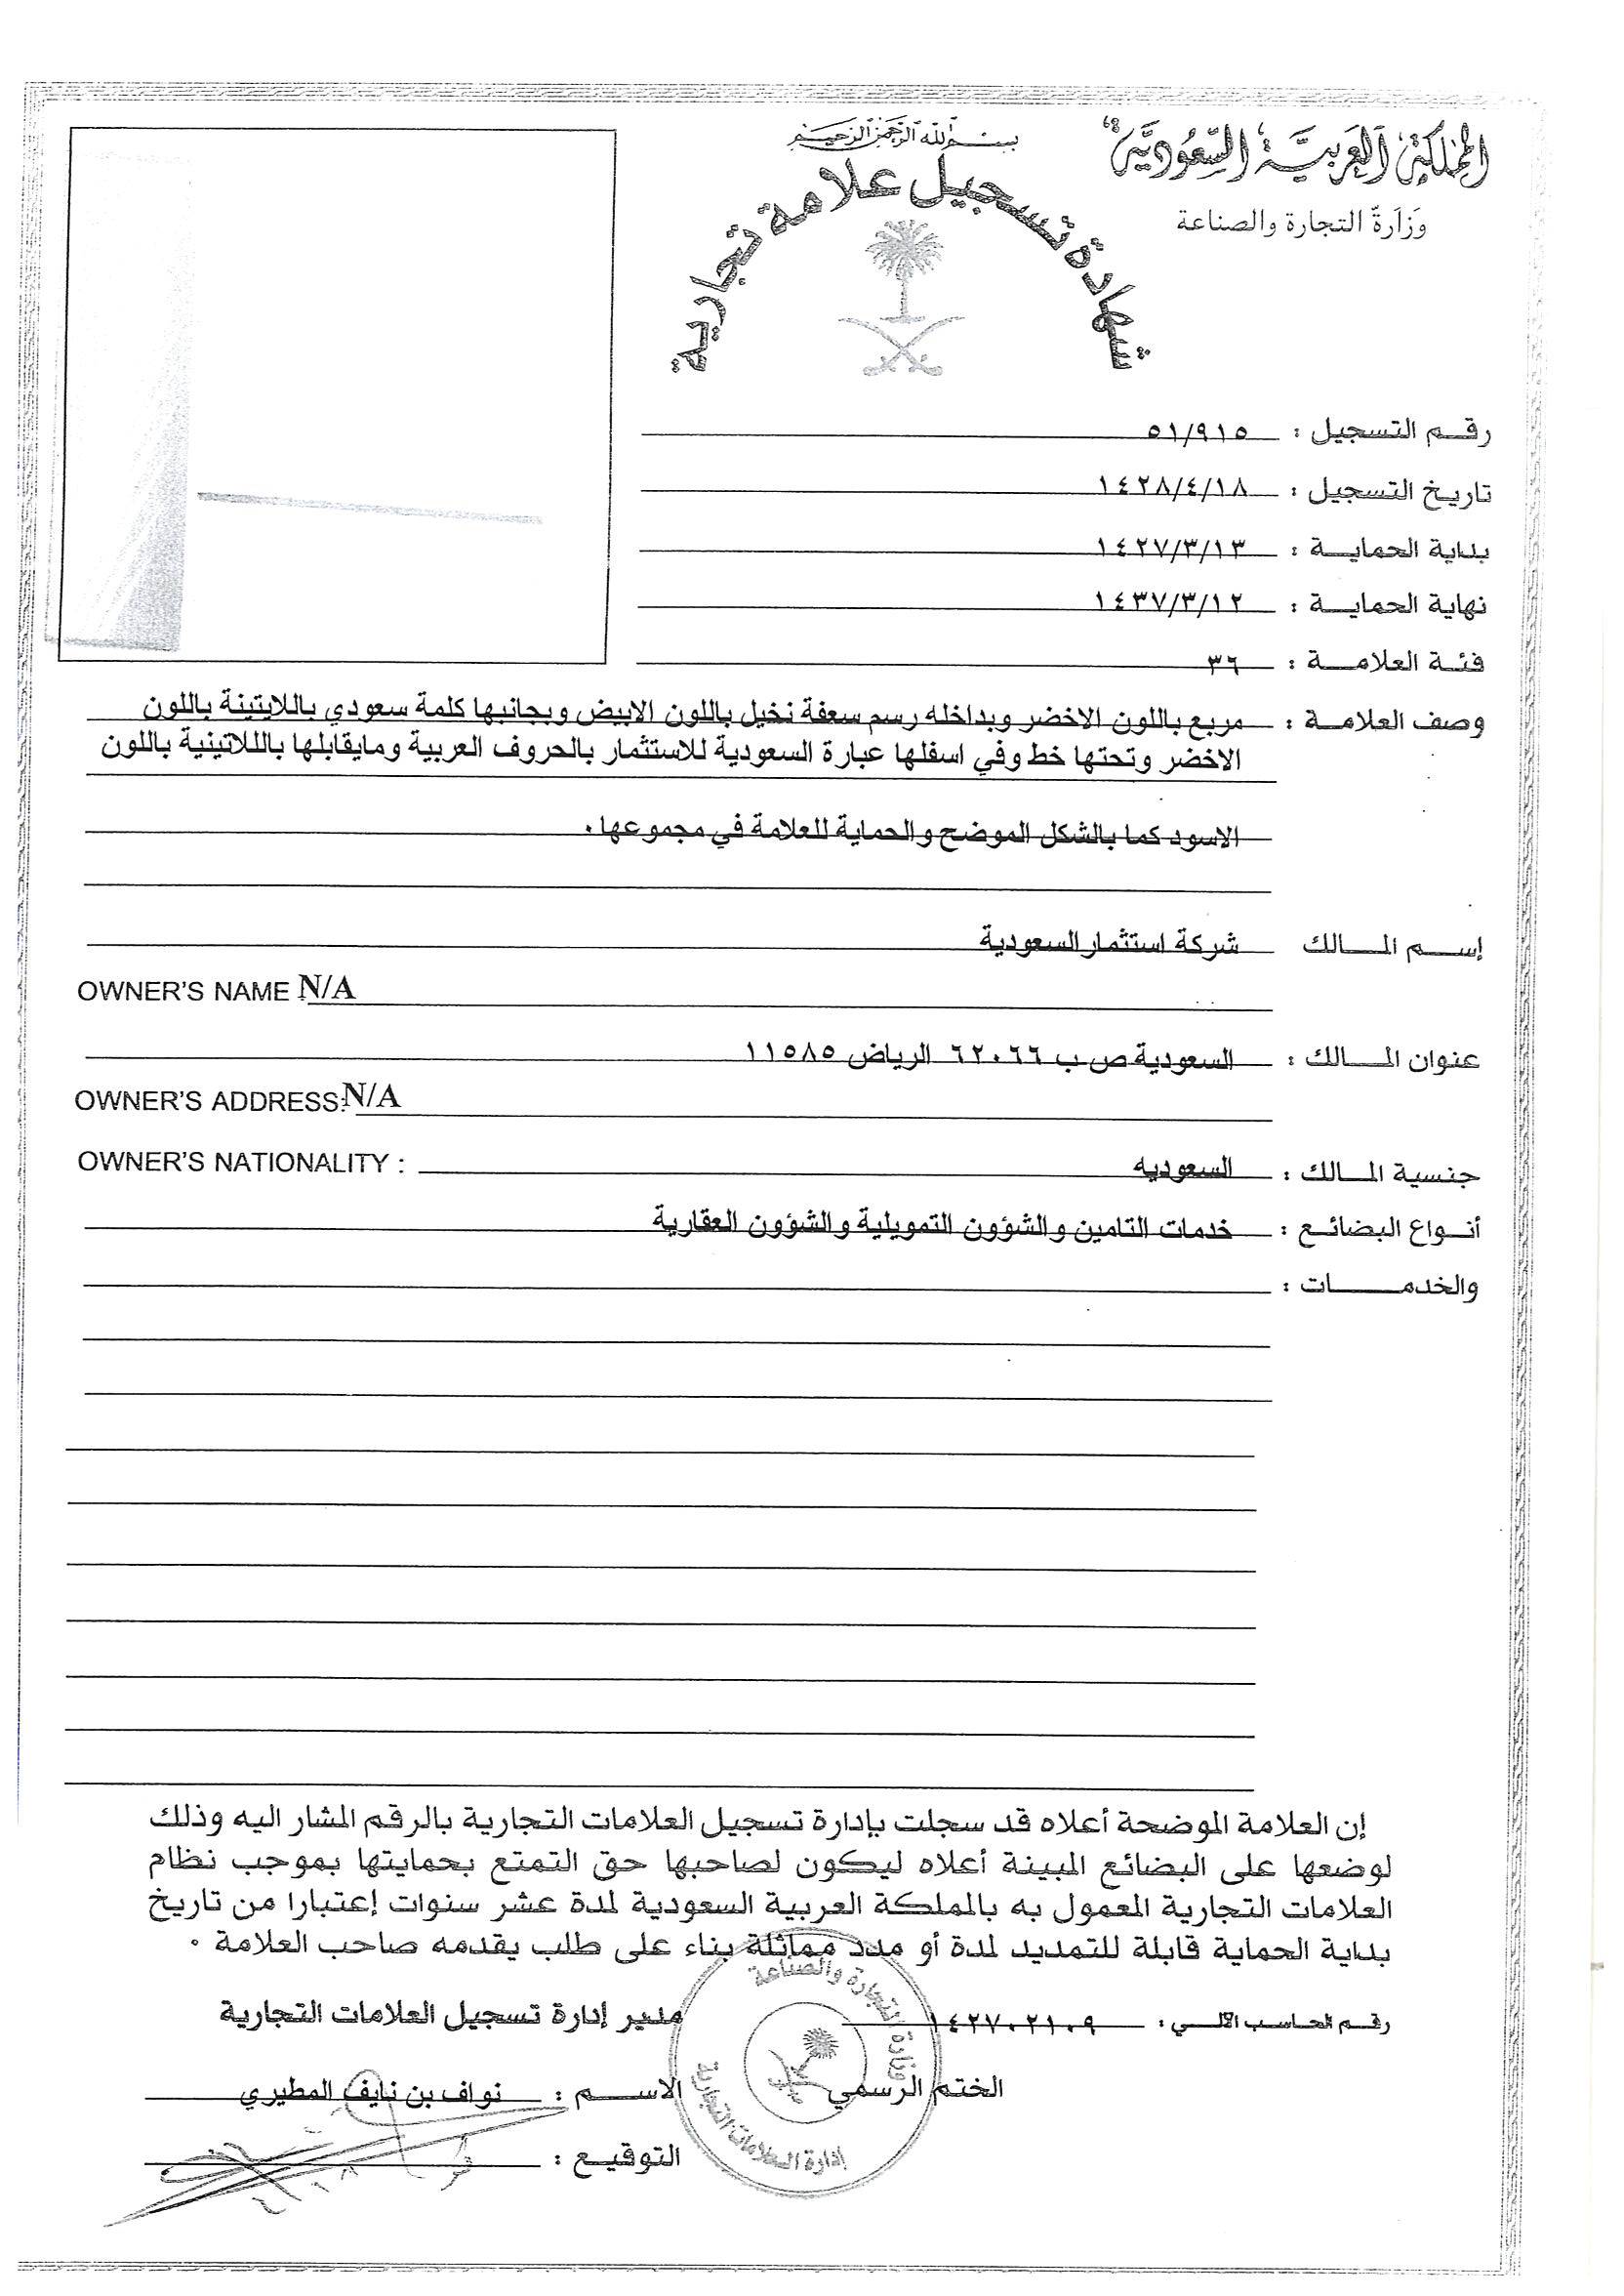 المملكة العربية السعودية
وزارة التجارة والصناعة
بسم الله الرحمن الرحيم
شهادة تسجيل علامة تجارية
رقم التسجيل : ٥١/٩١٥
تاريخ التسجيل : ١٤٢٨/٤/١٨
بداية الحماية : ١٤٢٧/٣/١٣
نهاية الحماية : ١٤٣٧/٣/١٢
فئة العلامة : ٣٦
وصف العلامة : مربع باللون الاخضر وبداخله رسم سعفة نخيل باللون الابيض وبجانبها كلمة سعودي باللايتينة باللون
الاخضر وتحتها خط وفي اسفلها عبارة السعودية للاستثمار بالحروف العربية ومايقابلها باللاتينية باللون
الاسود كما بالشكل الموضح والحماية للعلامة في مجموعها.
إسم المالك شركة استثمار السعودية
OWNER'S NAME N/A
عنوان المالك : السعودية ص ب ٦٢٠٦٦ الرياض ١١٥٨٥
OWNER'S ADDRESS: N/A
جنسية المالك : السعوديه
OWNER'S NATIONALITY :
أنواع البضائع : خدمات التامين والشؤون التمويلية والشؤون العقارية
والخدمات :
إن العلامة الموضحة أعلاه قد سجلت بإدارة تسجيل العلامات التجارية بالرقم المشار اليه وذلك
لوضعها على البضائع المبينة أعلاه ليكون لصاحبها حق التمتع بحمايتها بموجب نظام
العلامات التجارية المعمول به بالمملكة العربية السعودية لمدة عشر سنوات إعتبارا من تاريخ
بداية الحماية قابلة للتمديد لمدة أو مدد مماثلة بناء على طلب يقدمه صاحب العلامة .
رقم الحاسب الآلي : ١٤٢٧٠٢١٠٩
مدير إدارة تسجيل العلامات التجارية
الختم الرسمي
الاسم : نواف بن نايف المطيري
التوقيع :
وزارة التجارة والصناعة
إدارة العلامات التجارية